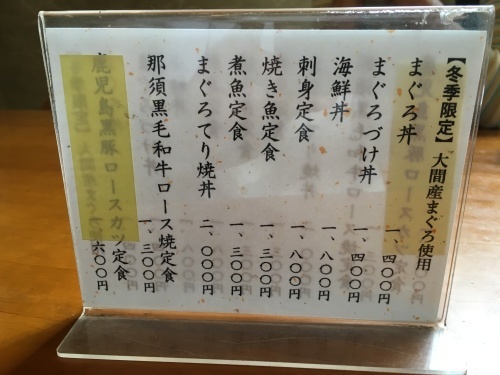 【冬季限定】大間産まぐろ使用
まぐろ丼 一、四〇〇円
まぐろづけ丼 一、四〇〇円
海鮮丼 一、八〇〇円
刺身定食 一、八〇〇円
焼き魚定食 一、三〇〇円
煮魚定食 一、三〇〇円
まぐろてり焼丼 二、〇〇〇円
那須黒毛和牛ロース焼定食 一、三〇〇円
鹿児島黒豚ロースカツ定食 六〇〇円